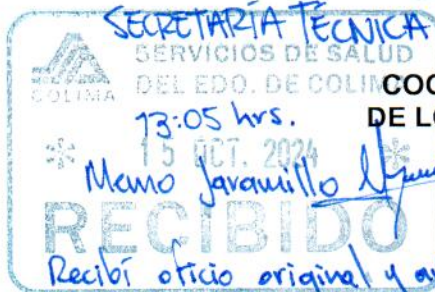 SECRETARÍA TÉCNICA
SERVICIOS DE SALUD
DEL EDO. DE COLIMA
COLIMA
COO
DE LO
13:05 hrs.
15 OCT. 2024
Memo Jaramillo
RECIBIDO
Recibí oficio original y